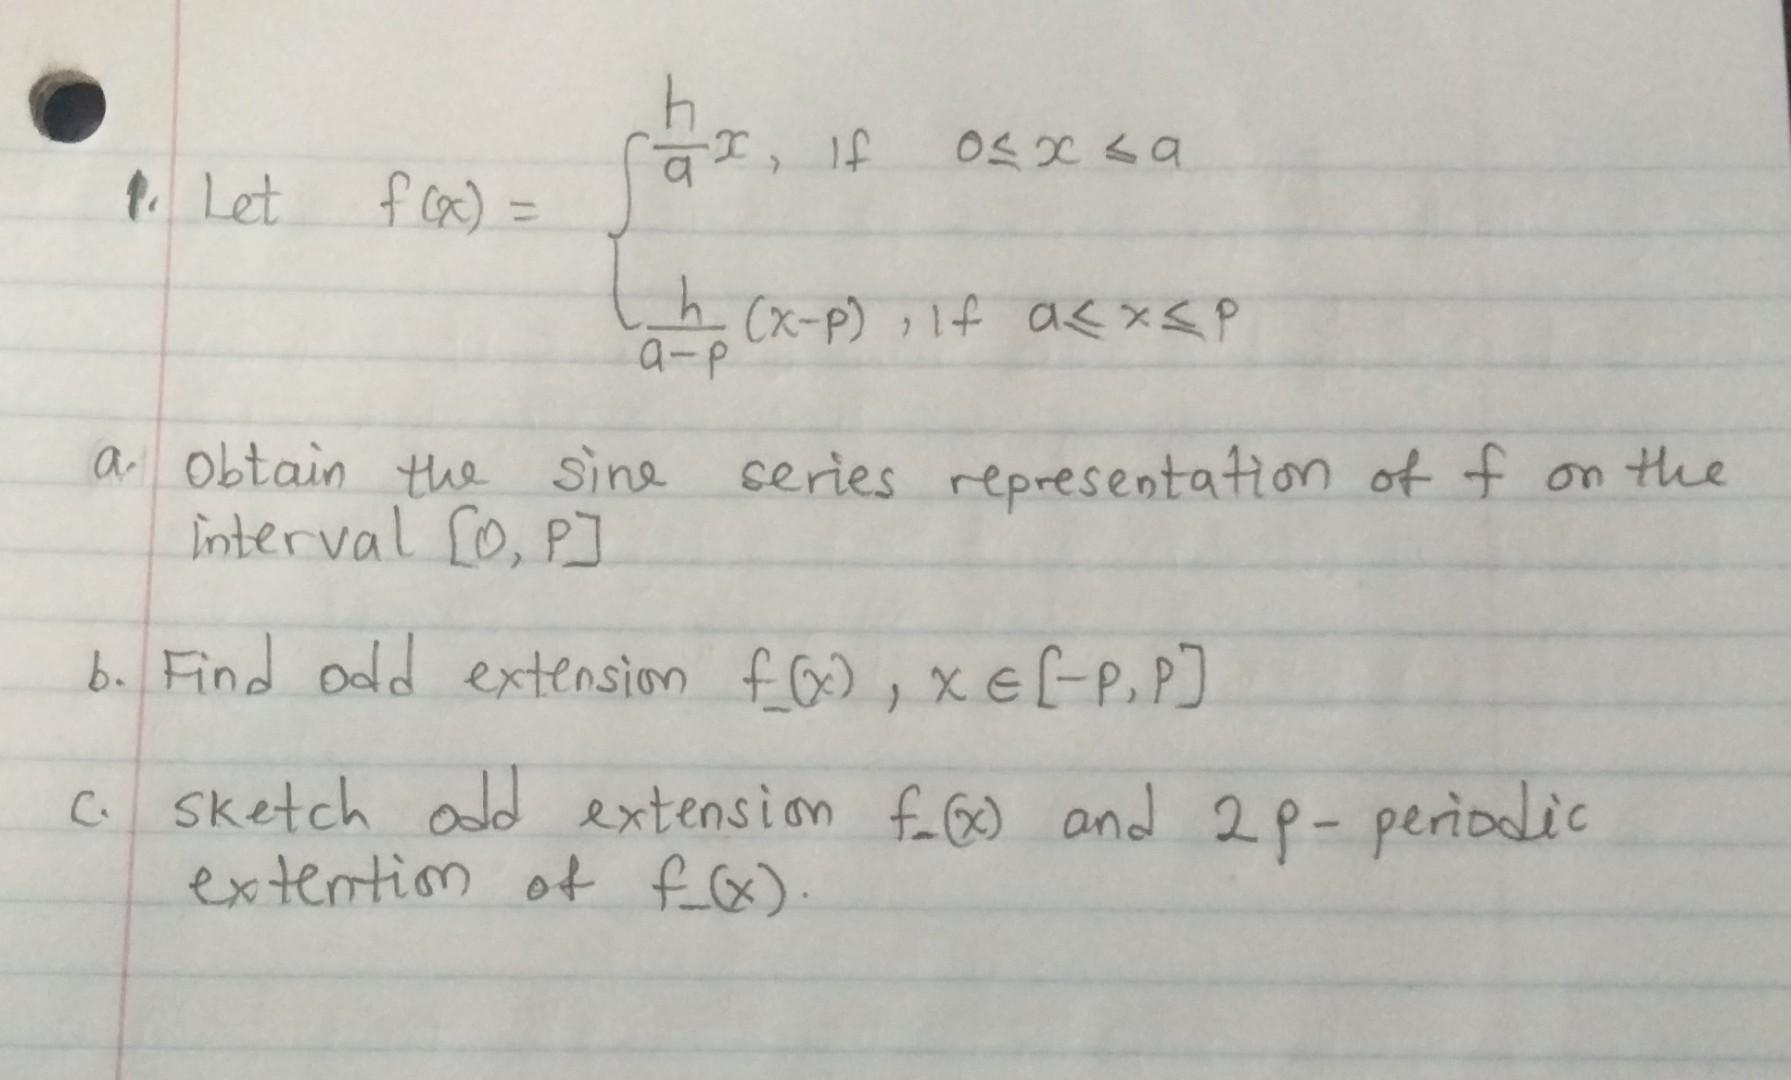 1. Let f(x) = { h/a x, if 0 ≤ x ≤ a
h/(a-p) (x-p), if a ≤ x ≤ p
a. Obtain the sine series representation of f on the
interval [0, P]
b. Find odd extension f_(x), x ∈ [-P, P]
c. sketch odd extension f_(x) and 2p-periodic
extention of f_(x).